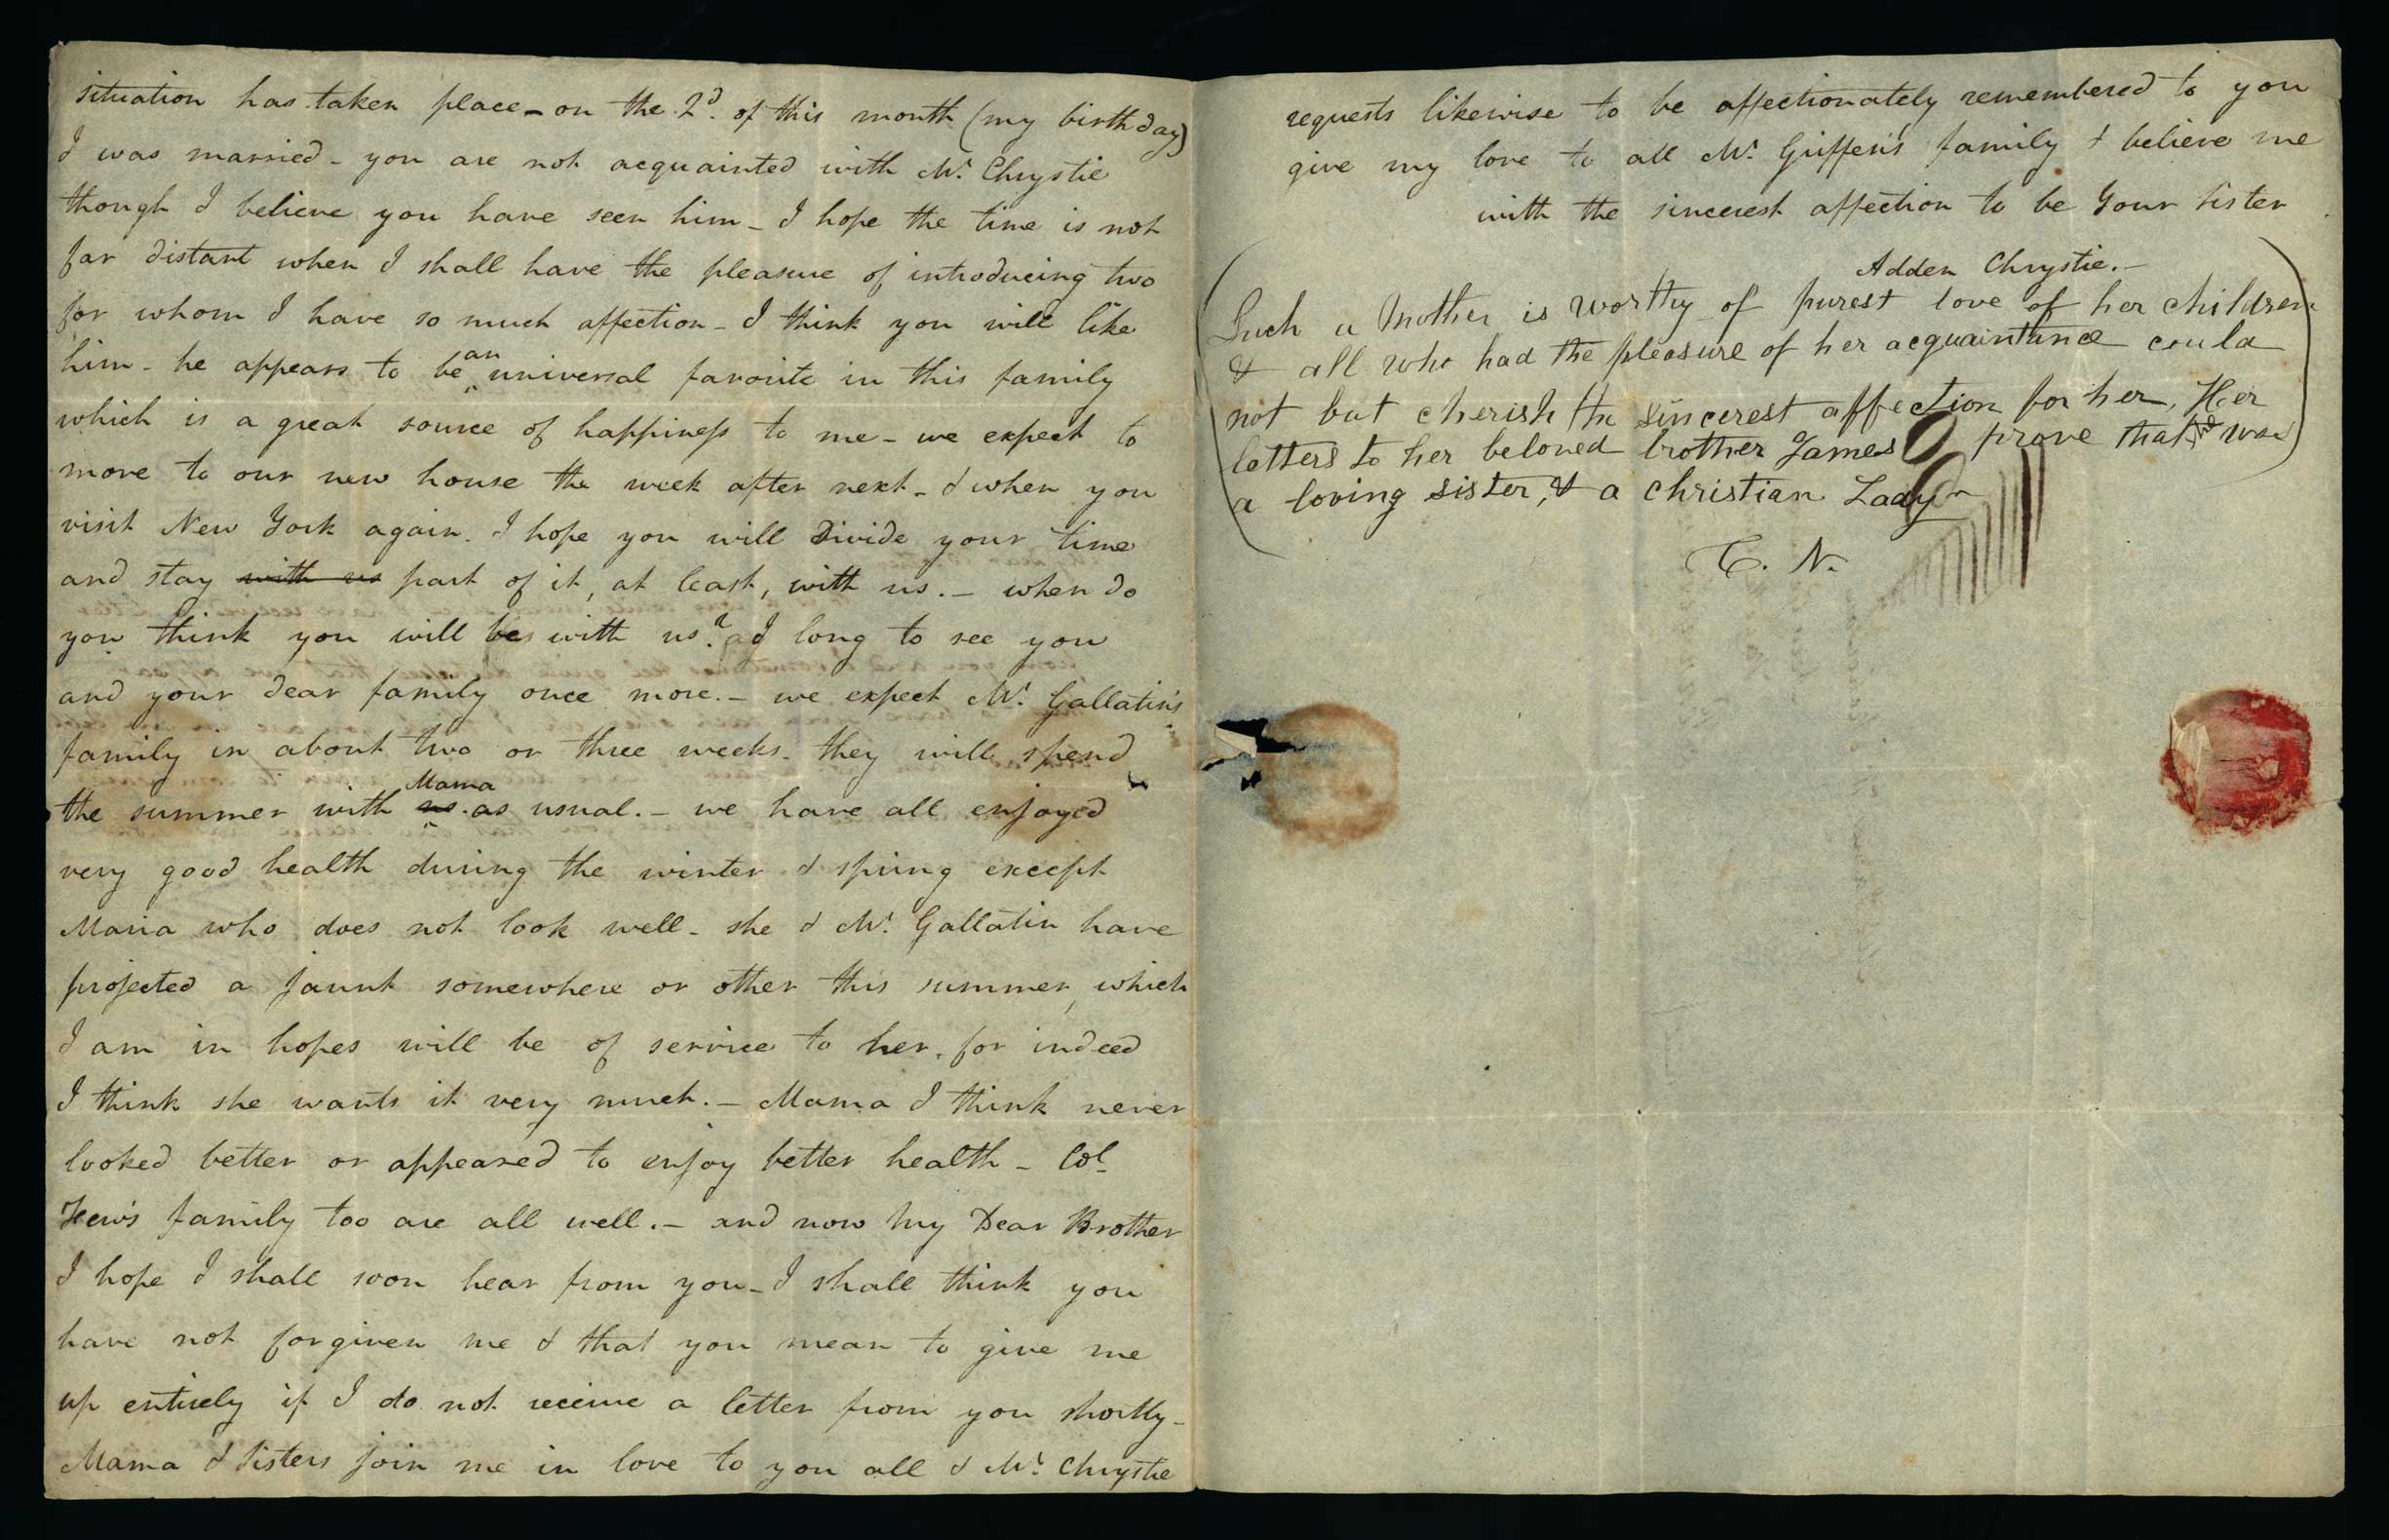 situation has taken place – on the 2d. of this month (my birth day)
I was married – you are not acquainted with Mr. Chrystie
though I believe you have seen him – I hope the time is not
far distant when I shall have the pleasure of introducing two
for whom I have so much affection – I think you will like
him – he appears to be an universal favorite in this family
which is a great source of happiness to me – we expect to
move to our new house the week after next – & when you
visit New York again. I hope you will Divide your time
and stay with us part of it, at least, with us. – when do
you think you will be with us? I long to see you
and your dear family once more. – we expect Mr. Gallatin's
family in about two or three weeks. they will spend
the summer with us Mama as usual. – we have all enjoyed
very good health during the winter & spring except
Maria who does not look well – she & Mr. Gallatin have
projected a jaunt somewhere or other this summer, which
I am in hopes will be of service to her, for indeed
I think she wants it very much. – Mama I think never
looked better or appeared to enjoy better health – Col
Few's family too are all well. – and now my Dear Brother
I hope I shall soon hear from you – I shall think you
have not forgiven me & that you mean to give me
up entirely if I do not receive a letter from you shortly –
Mama & Sisters join me in love to you all & Mr. Chrystie
requests likewise to be affectionately remembered to you
give my love to all Mr. Griffen's family & believe me
with the sincerest affection to be Your Sister
Adden Chrystie. –
(Such a Mother is worthy of purest love of her children
& all who had the pleasure of her acquaintance could
not but cherish the sincerest affection for her. Her
letters to her beloved brother James prove that was
a loving sister, & a christian Lady)
C. N.